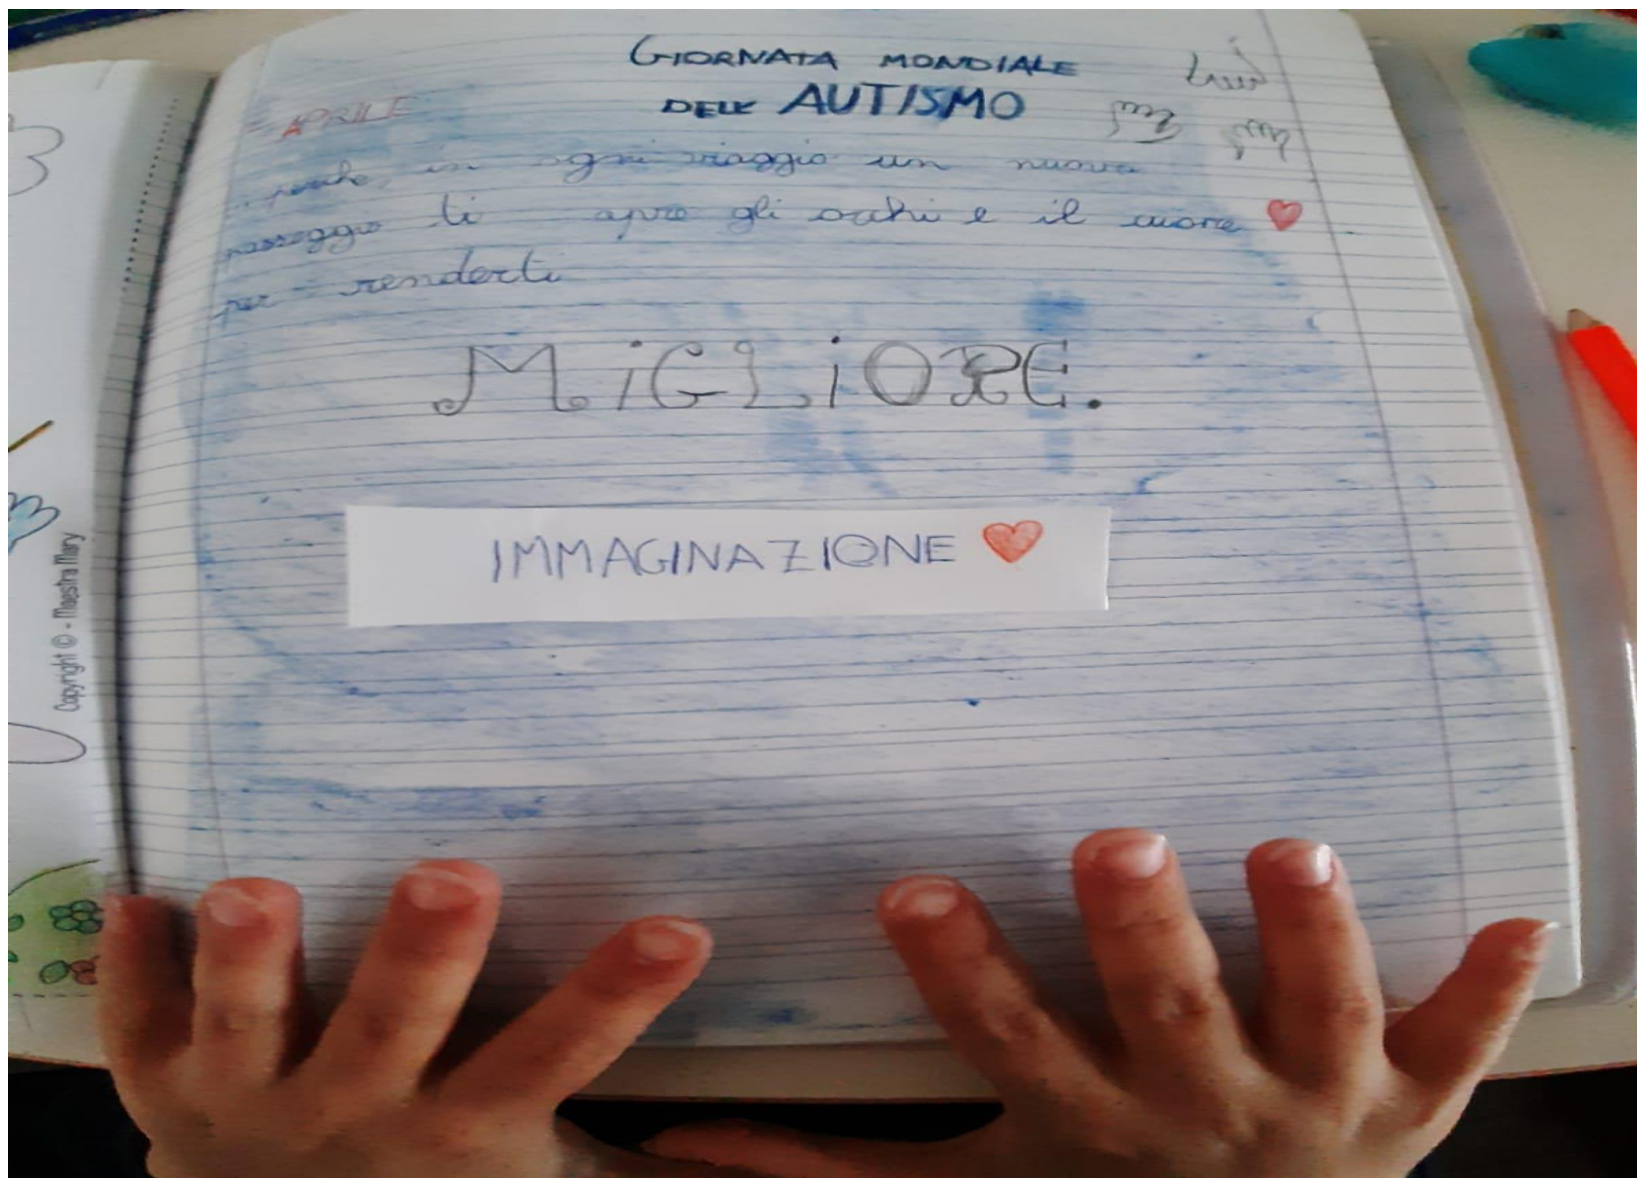 GIORNATA MONDIALE
DELL' AUTISMO
APRILE
... perché in ogni viaggio un nuovo
passaggio ti apre gli occhi e il cuore
per renderti
MiGLiORE.
IMMAGINAZIONE
Copyright © - Maestra Mary